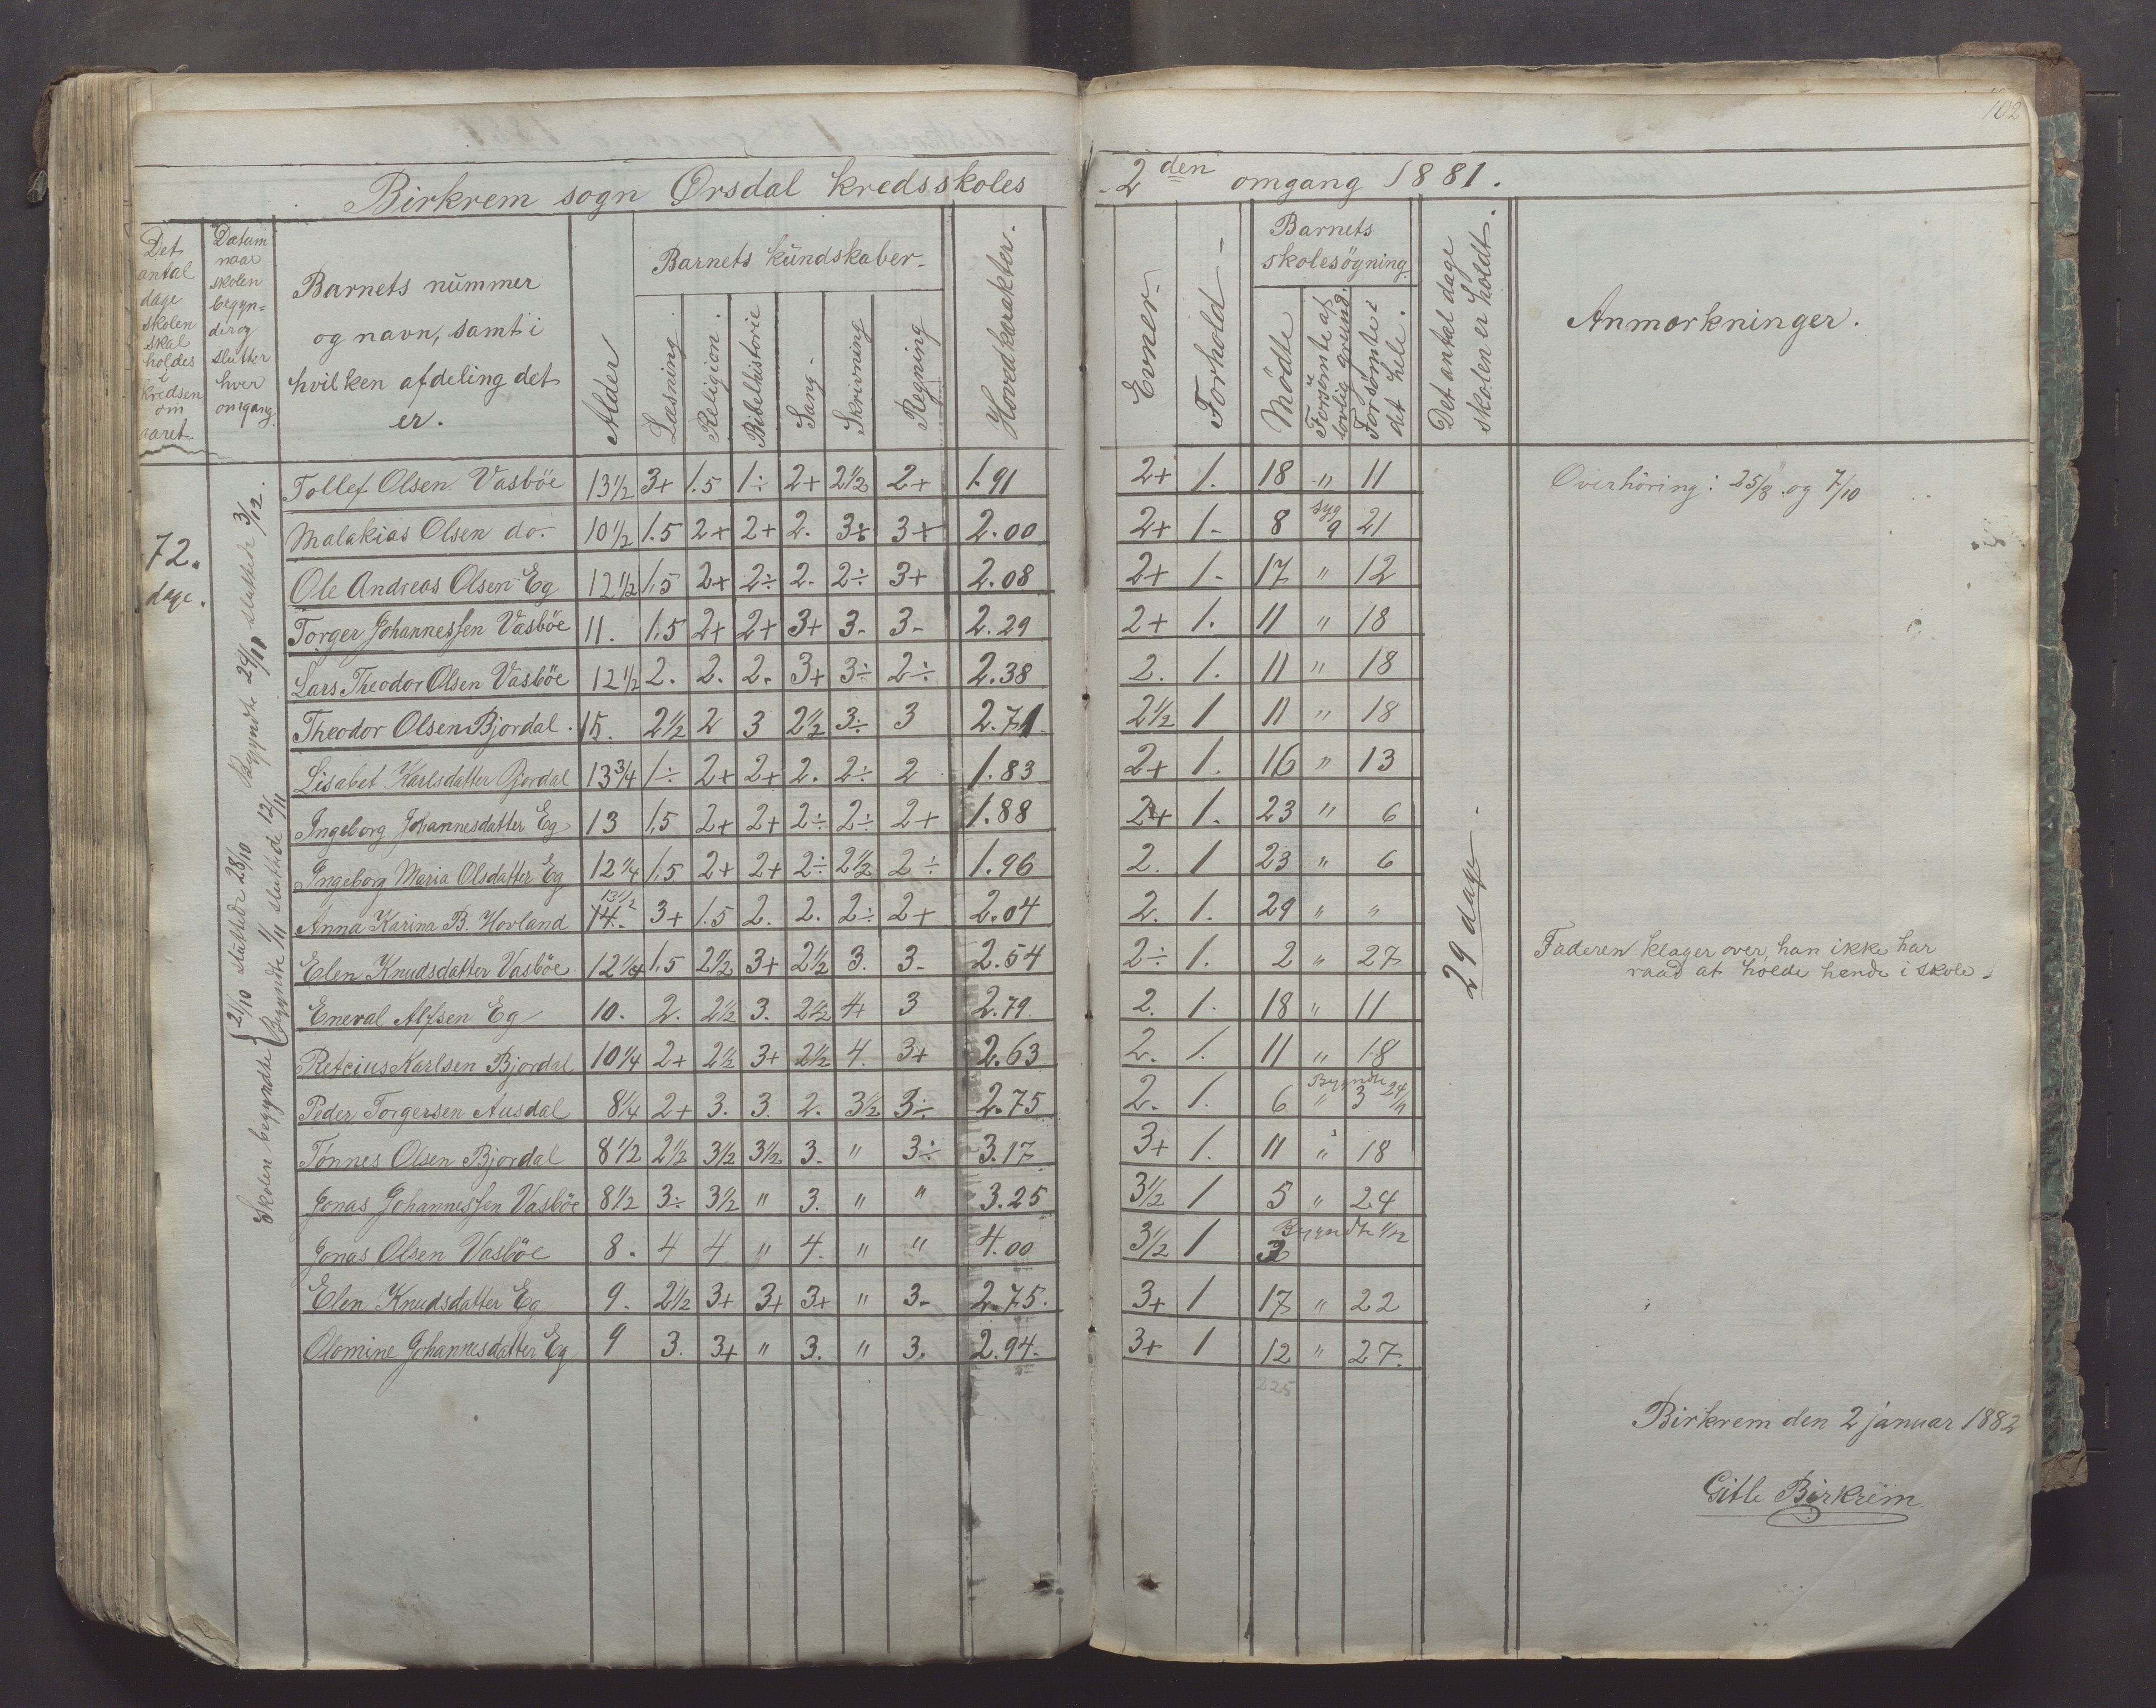 102
Birkrem sogn Ørsdal kredsskoles 2den omgang 1881.
Det antal dage skolen skal holdes i kredsen om aaret.
Datum naar skolen begyn= der og slutter hver omgang.
Barnets nummer og navn, samt i hvilken afdeling det er.
Alder
Barnets kundskaber.
Læsning.
Religion.
Bibelhistorie
Sang.
Skrivning
Regning
Hovedkarakter.
Evner.
Forhold
Barnets skolesøgning.
Mödte
Forsömte af lovlig grund.
Forsømte i det hele.
Det antal dage skolen er holdt.
Anmærkninger.
72. dage.
Skolen begyndte 21/10 sluttede 28/10 Begyndte 24/11 sluttede 3/12.
Begyndte 1/11 sluttede 12/11
Tollef Olsen Vasböe 13 1/2 3+ 1.5 1÷ 2+ 2 1/2 2+ 1.91 2+ 1. 18 " 11 Overhöring: 25/8 og 7/10
Malakias Olsen do. 10 1/2 1.5 2+ 2+ 2. 3+ 3+ 2.00 2+ 1- 8 syg 9 21
Ole Andreas Olsen Eg 12 1/2 1.5 2+ 2÷ 2. 2÷ 3+ 2.08 2+ 1- 17 " 12
Torger Johannessen Vasböe 11. 1.5 2+ 2+ 3+ 3- 3- 2.29 2+ 1. 11 " 18
Lars Theodor Olsen Vasböe 12 1/2 2. 2. 2. 3+ 3÷ 2÷ 2.38 2. 1. 11 " 18
Theodor Olsen Bjordal 15. 2 1/2 2 3 2 1/2 3÷ 3 2.71 2 1/2 1 11 " 18
Lisabet Karlsdatter Bjordal 13 3/4 1÷ 2+ 2+ 2. 2÷ 2 1.83 2+ 1. 16 " 13
Ingeborg Johannesdatter Eg 13 1.5 2+ 2+ 2÷ 2÷ 2+ 1.88 2+ 1. 23 " 6
Ingeborg Maria Olsdatter Eg 12 1/4 1.5 2+ 2+ 2÷ 2 1/2 2÷ 1.96 2. 1 23 " 6
29 dage
Anna Karina B. Hovland 13 1/2 14. 3+ 1.5 2. 2. 2÷ 2+ 2.04 2. 1. 29 " "
Elen Knudsdatter Vasböe 12 1/4 1.5 2 1/2 3+ 2 1/2 3. 3- 2.54 2÷ 1. 2 " 27 Faderen klager over, han ikke har
raad at holde hende i skole.
Eneval Alfsen Eg 10. 2. 2 1/2 3. 2 1/2 4 3 2.79 2. 1. 18 " 11
Retcius Karlsen Bjordal 10 1/4 2+ 2 1/2 3+ 2 1/2 4. 3+ 2.63 2. 1. 11 " 18
Peder Torgersen Ausdal 8 1/4 2+ 3. 3. 2. 3 1/2 3÷ 2.75 2. 1. 6 " 3 Begyndte 24/11
Tønnes Olsen Bjordal 8 1/2 2 1/2 3 1/2 3 1/2 3. " 3÷ 3.17 3+ 1. 11 " 18
Jonas Johannessen Vasböe 8 1/2 3÷ 3 1/2 " 3. " " 3.25 3 1/2 1 5 " 24
Jonas Olsen Vasböe 8. 4 4 " 4. " " 4.00 3 1/2 1 3 Begyndte 1/12
Elen Knudsdatter Eg 9. 2 1/2 3+ 3+ 3+ " 3- 2.75. 3+ 1 17 " 22
Olomine Johannesdatter Eg 9 3. 3+ " 3. " 3. 2.94. 3+ 1 12 " 27.
225
Birkrem den 2 januar 1882
Gitle Birkrem